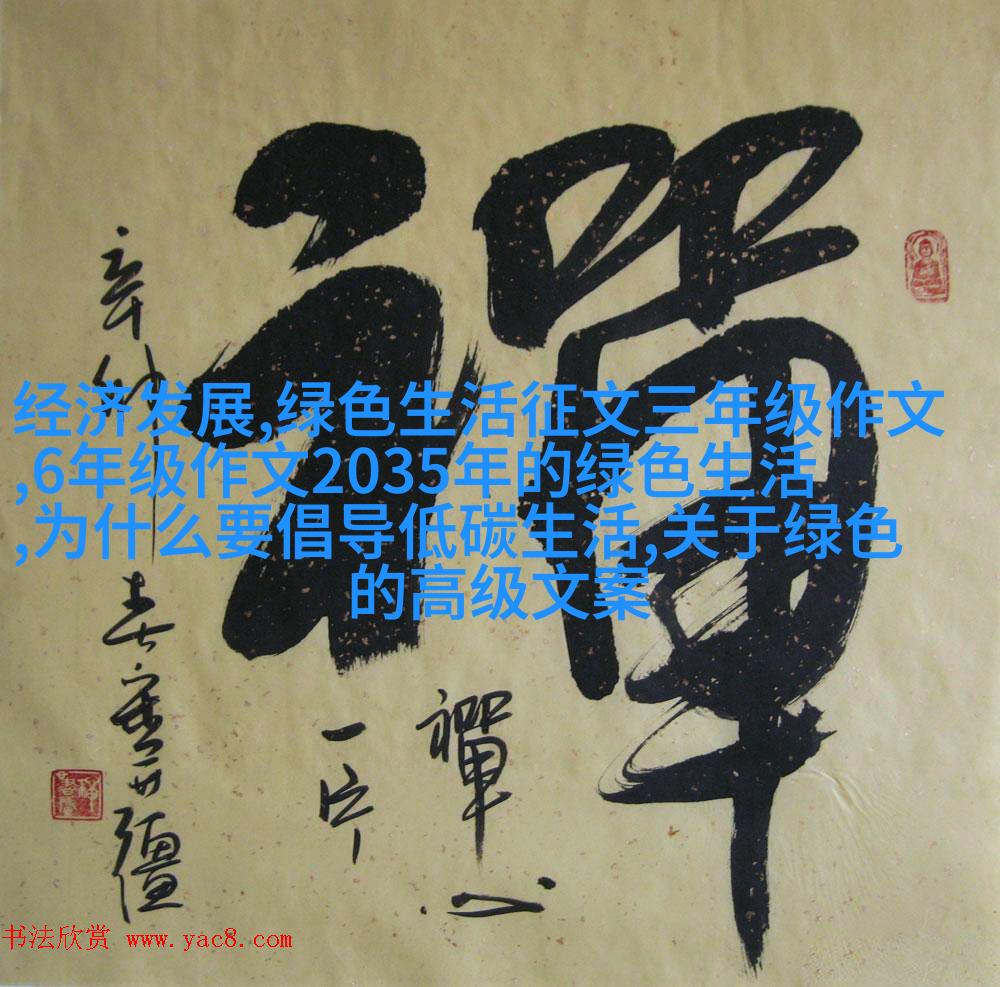 禪
禪心
一片
辛卯春
经济发展,绿色生活征文三年级作文
,6年级作文2035年的绿色生活
,为什么要倡导低碳生活,关于绿色
的高级文案
书法欣赏 www.yac8.com